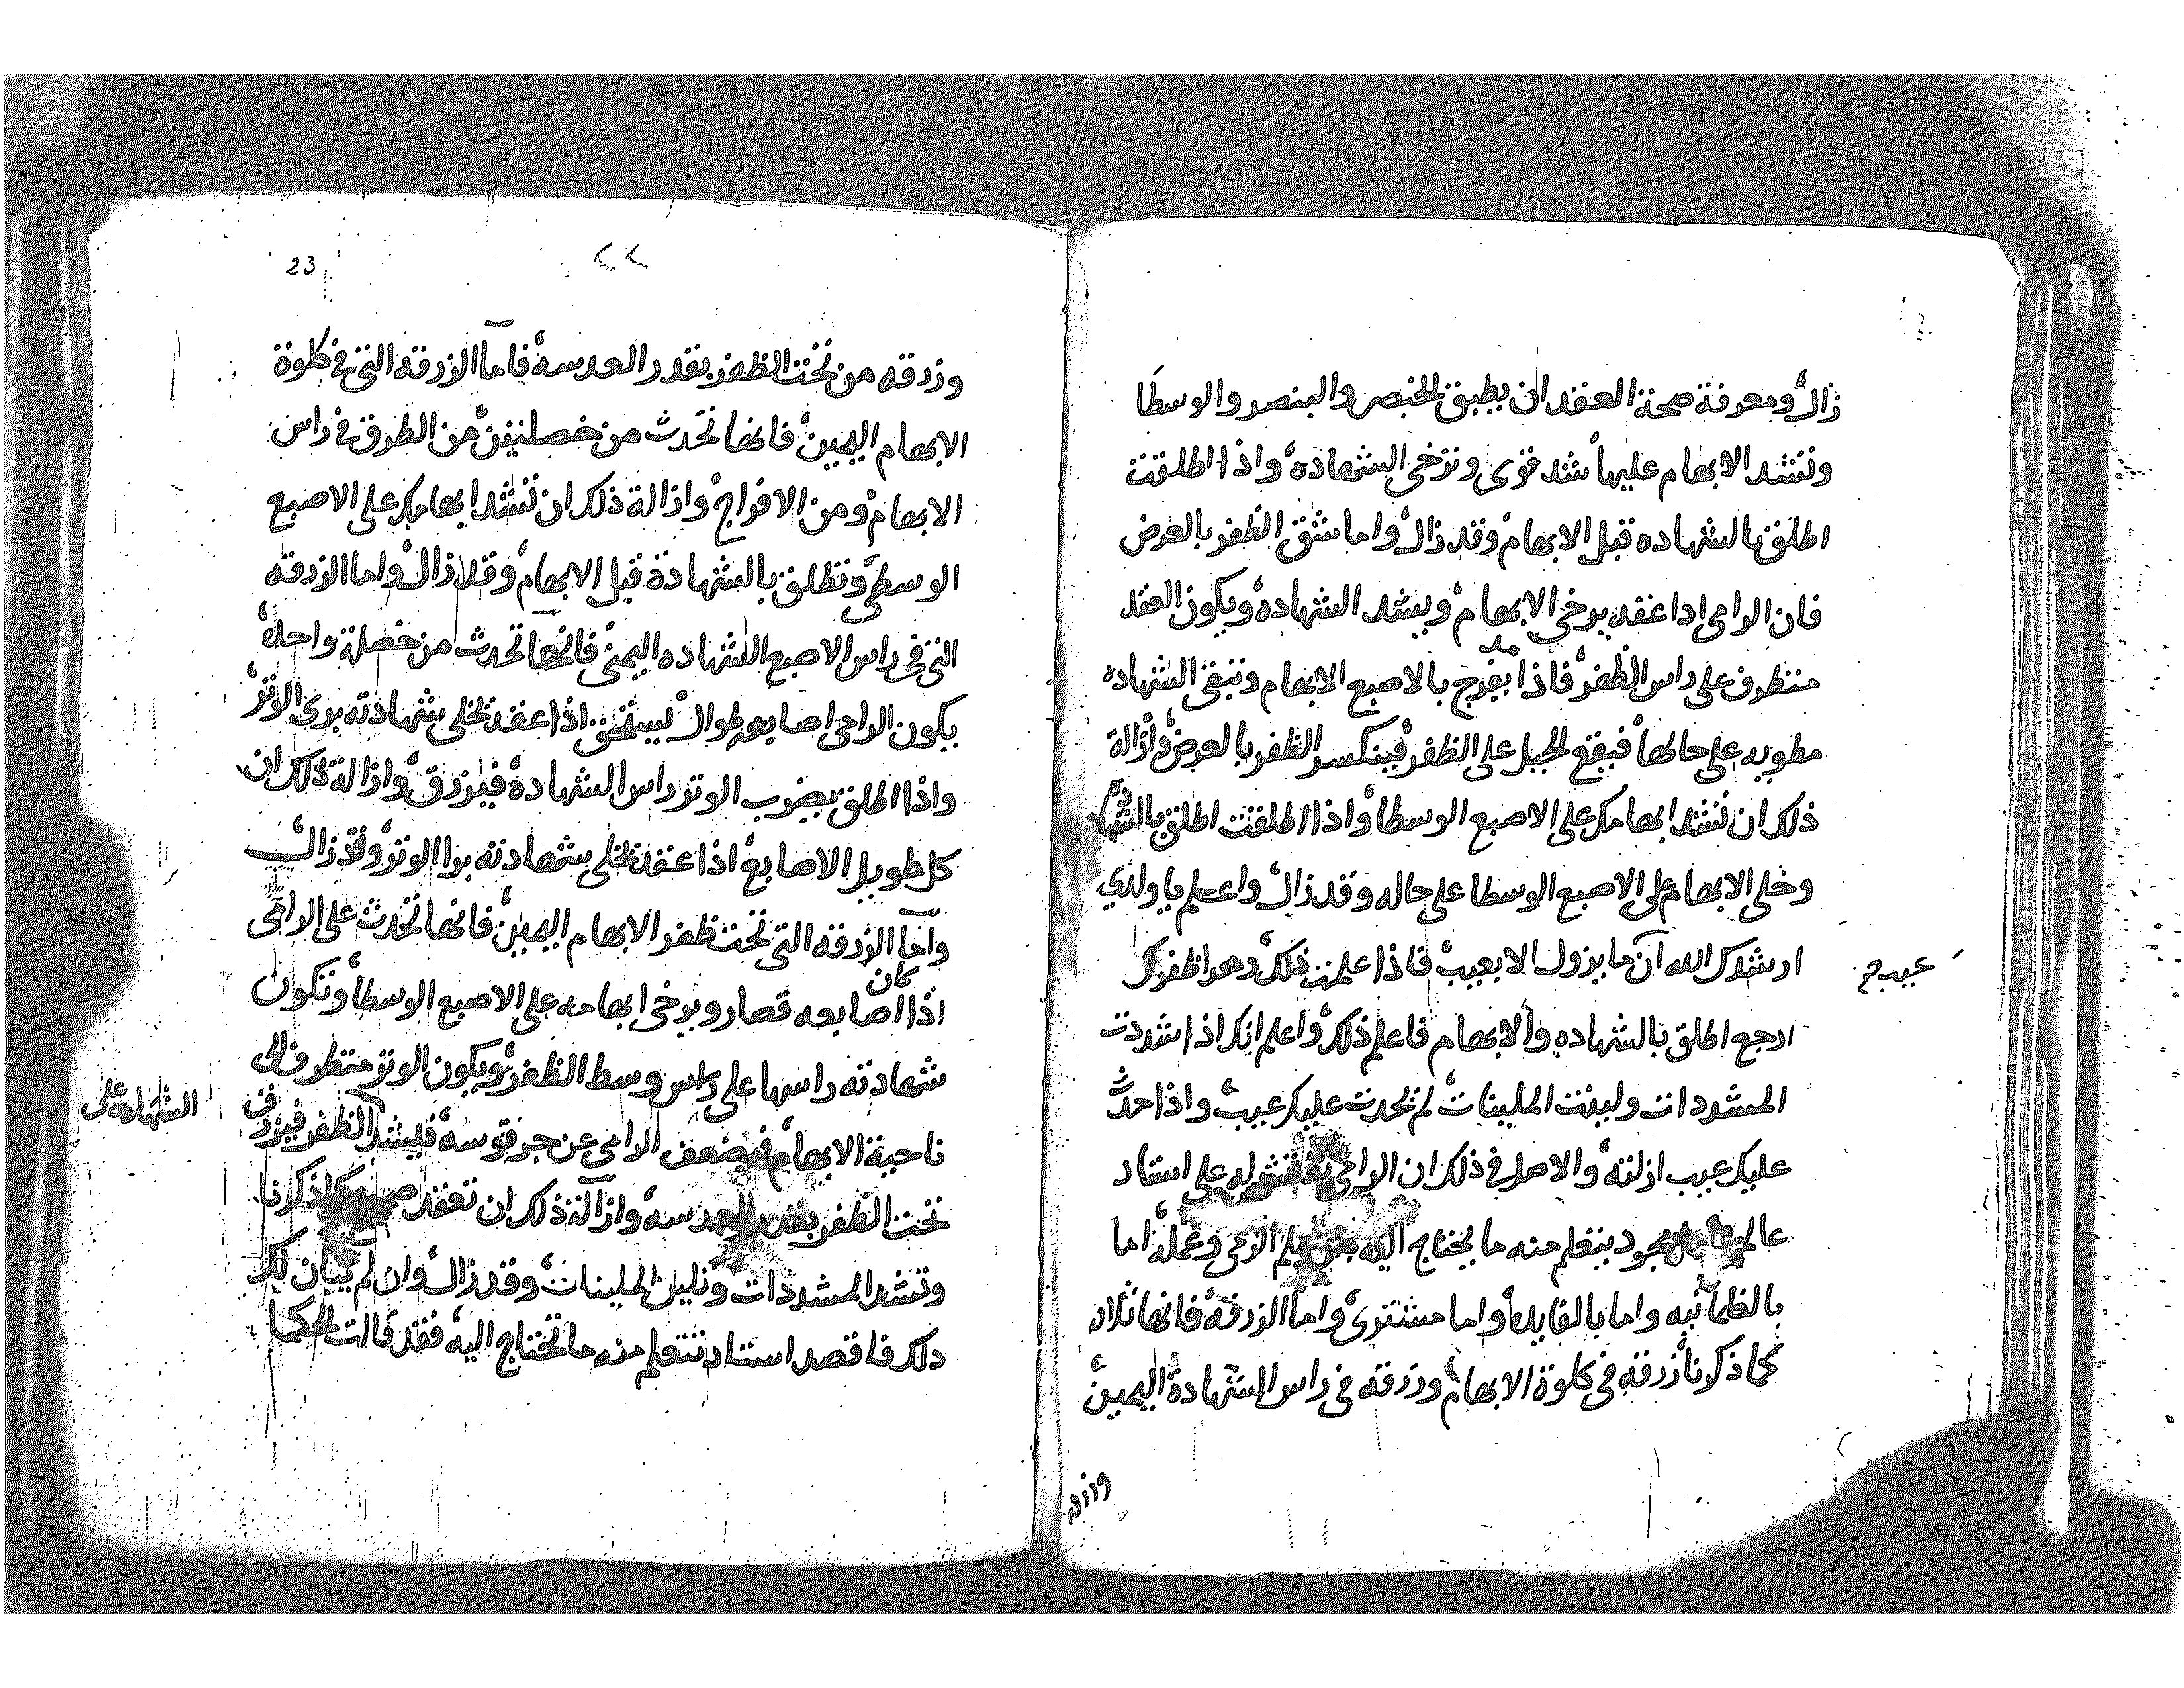 زال ومعرفة صحة العقد ان يطبق الخنصر والبنصر والوسطا
وتشد الابهام عليها شد قوى وترخى الشهاده واذا اطلقت
اطلق بالشهاده قبل الابهام وقد زال واما شقق الظفر بالعرض
فان الرامى اذا عقد يرخى الابهام ويشد الشهاده ويكون العقد
متطرف على راس الظفر فاذا يفرج بالاصبع الابهام وتبقى الشهاده
مطويه على حالها فيقع الحبل على الظفر فينكسر الظفر بالعرض وازالة
ذلك ان تشد ابهامك على الاصبع الوسطا واذا اطلقت اطلق بالشهاده
وخلى الابهام على الاصبع الوسطا على حاله وقد زال واعلم يا ولدي
ارشدك الله ان ما يزول الا بعيب فاذا علمت ذلك وهرا ظفرك
عيب ح
ارجع اطلق بالشهاده والابهام فاعلم ذلك واعلم انك اذا شددت
المشددات ولينت الملينات لم يحدث عليك عيب واذا حدث
عليك عيب ازلته والاصل في ذلك ان الرامى على استاد
عالم مجود يتعلم منه ما يحتاج اليه الرمى وعمله اما
بالطمانيه واما بالفايده واما مشترى واما الزرقة فانها ثلاث
كما ذكرنا زرقه فى كلوة الابهام وزرقه فى راس الشهادة اليمين
وزرقه
23
٢٢
وزرقه من تحت الظفر بقدر العدسة فاما الزرقه التى فى كلوة
الابهام اليمين فانها تحدث من خصلتين من الطرق فى راس
الابهام ومن الافراج وازالة ذلك ان تشد ابهامك على الاصبع
الوسطى وتطلق بالشهادة قبل الابهام وقد زال واما الزرقه
التى فى راس الاصبع الشهاده اليمنى فانها تحدث من خصلة واحدة
يكون الرامى اصابعه طوال يستحق اذا عقد يخلى شهادته برى الوتر
واذا اطلق يضرب الوتر راس الشهادة فيزرق وازالة ذلك ان
كل طويل الاصابع اذا عقد يخلى شهادته برا الوتر وقد زال
واما الزرقه التى تحت ظفر الابهام اليمين فانها تحدث على الرامى
اذا كان اصابعه قصار ويرخى ابهامه على الاصبع الوسطا وتكون
شهادته راسها على راس وسط الظفر ويكون الوتر متطرف الى
ناحية الابهام فيضعف الرامى عن جر قوسه فيشد الظفر فيزرق
الشهاده على
تحت الظفر بقدر العدسه وازالة ذلك ان تعقد كما ذكرنا
وتشد المشددات وتلين الملينات وقد زال وان لم يبان لك
ذلك فاقصد استاد تتعلم منه ما تحتاج اليه فقد قالت الحكما